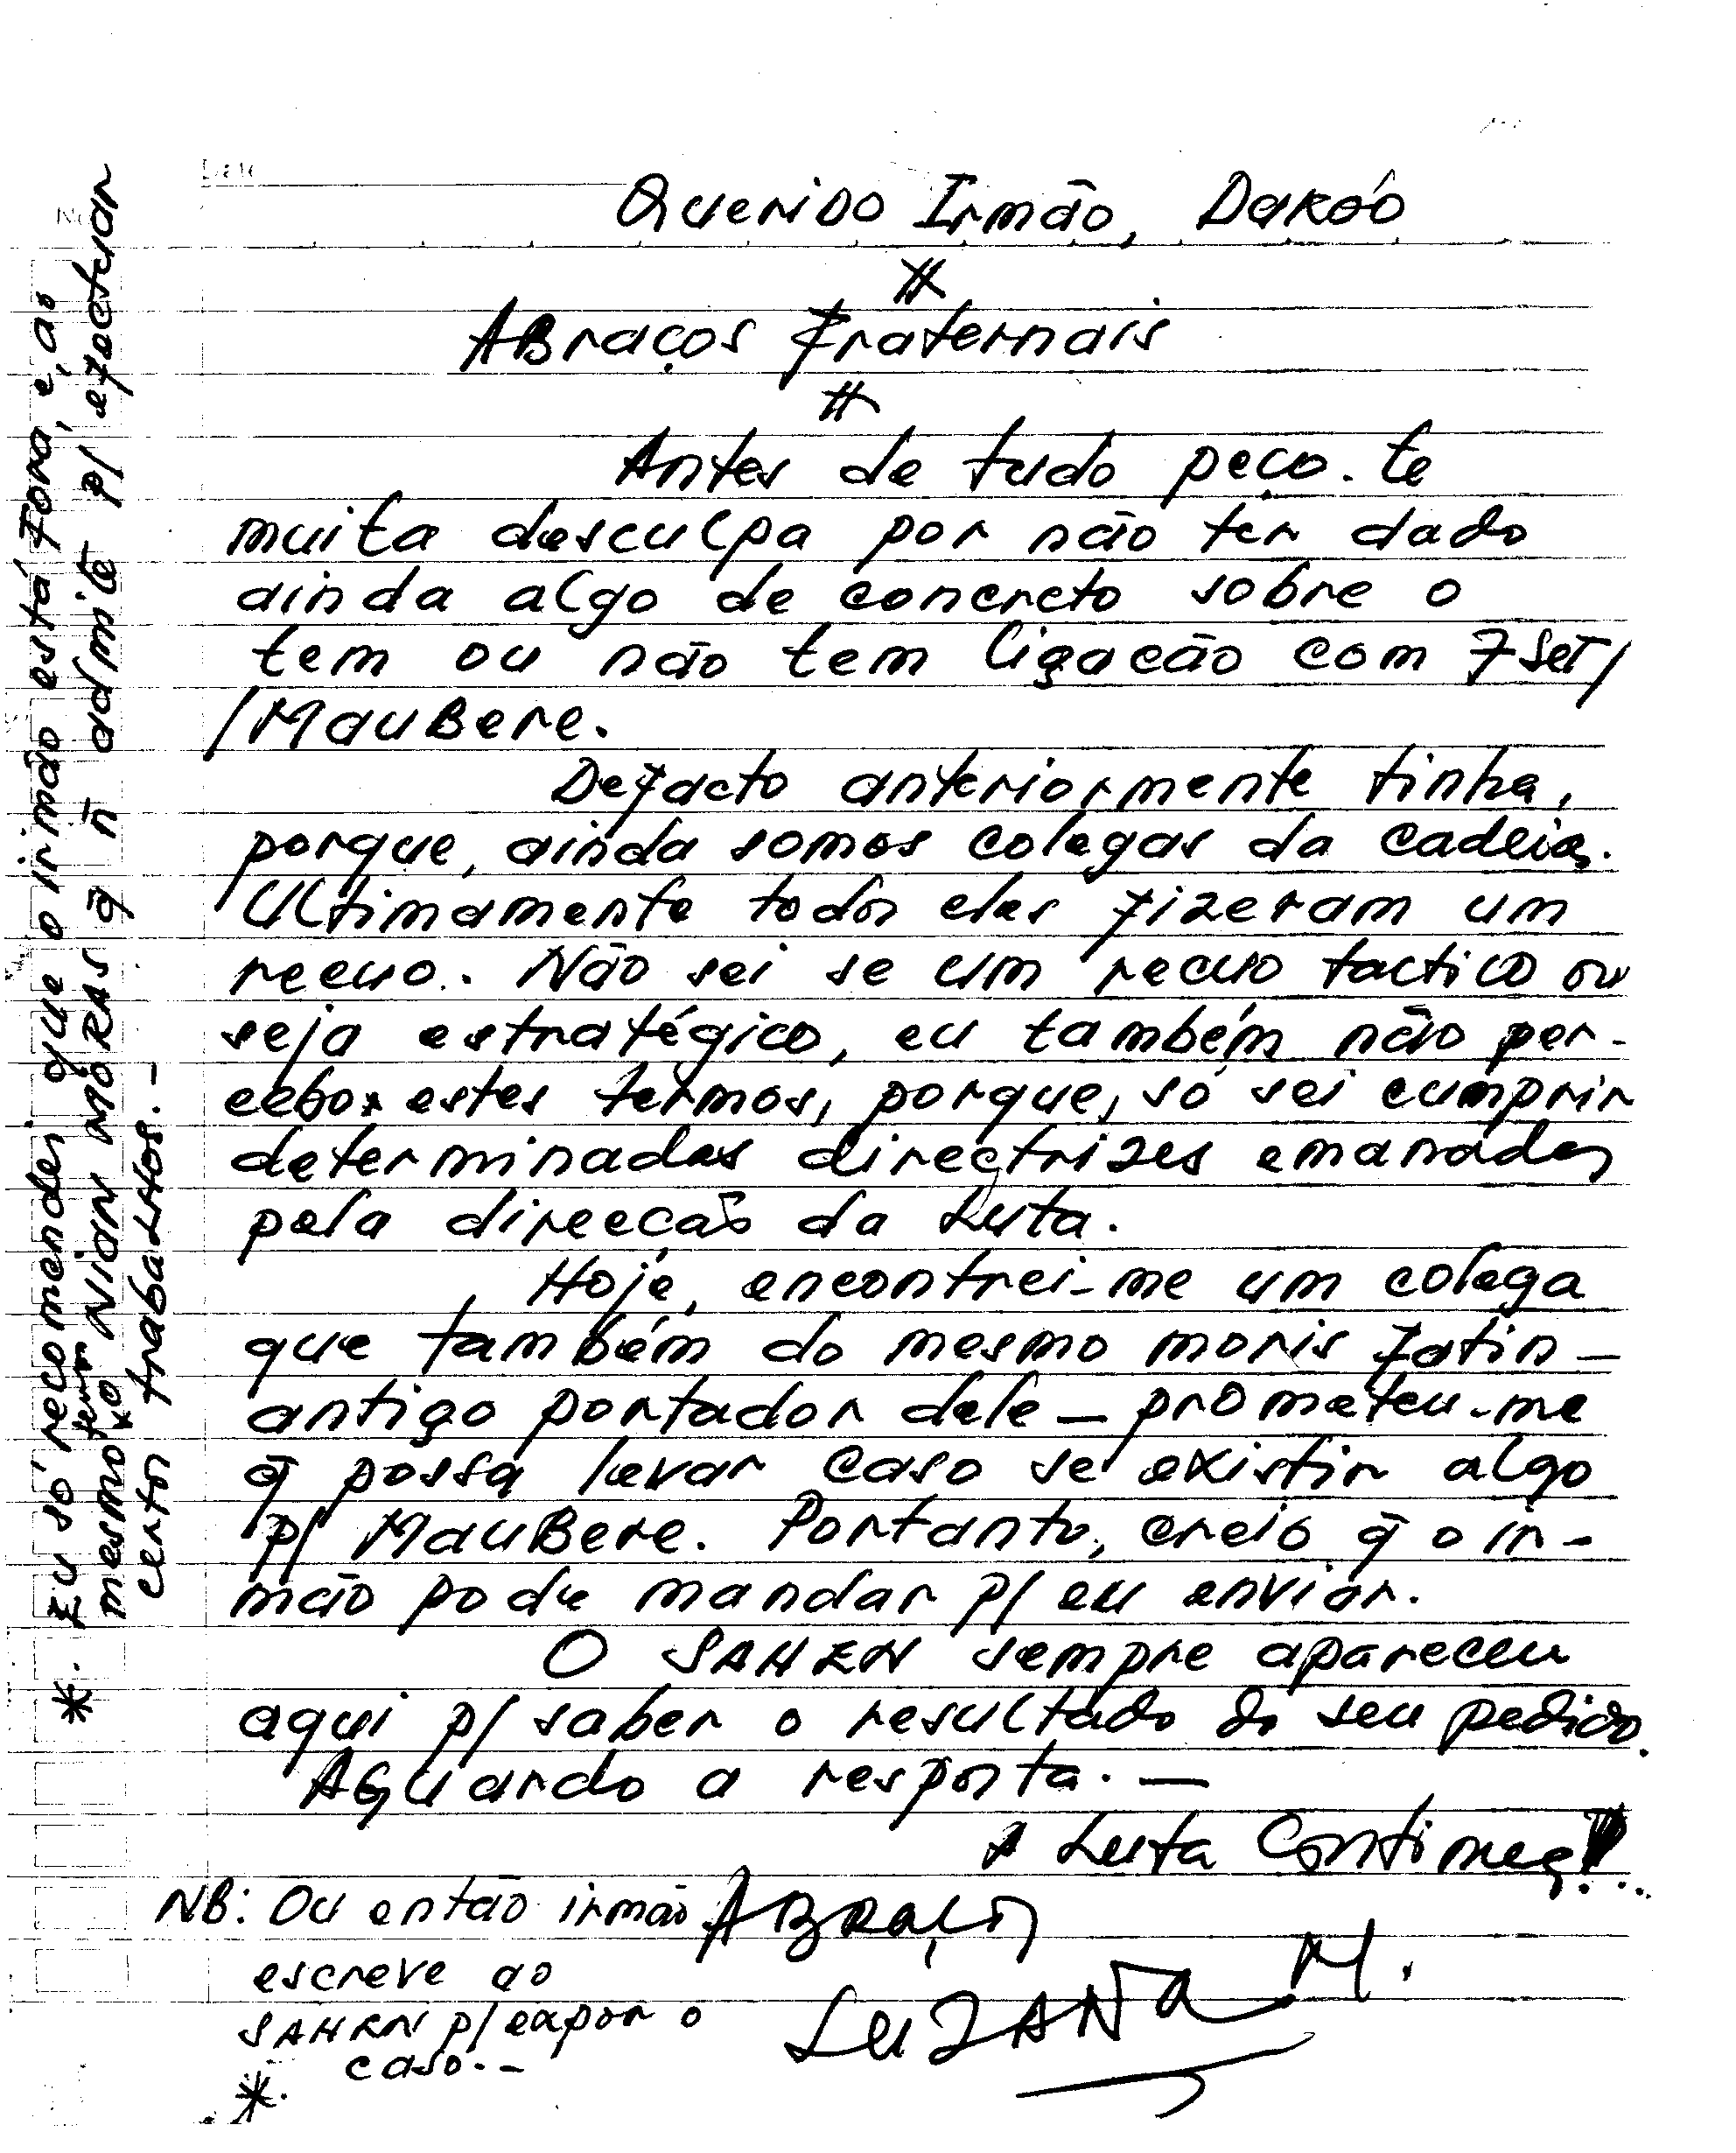 Querido Irmão, Dakóó
#
Abraços Fraternais
#
Antes de tudo peço-te
muita desculpa por não ter dado
ainda algo de concreto sobre o
tem ou não tem ligacão com 7 Set/
/MauBere.
Defacto anteriormente tinha,
porque, ainda somos colegas da cadeia.
Ultimamente todos eles fizeram um
recuo. Não sei se um recuo tactico ou
seja estratégico, eu também não per-
cebo estes termos, porque, só sei cumprir
determinadas directrizes emanadas
pela direccão da Luta.
Hoje, encontrei-me um colega
que também do mesmo moris fatin -
antigo portador dele - prometeu-me
q̄ possa levar caso se existir algo
p/ MauBere. Portanto, creio q̄ o ir-
mão pode mandar p/ eu enviar.
O SAHEN sempre apareceu
aqui p/ saber o resultado do seu pedido.
Aguardo a resposta. -
A Luta Continua!...
Abraços
LUZANA M.
NB: Ou então irmão
escreve ao
SAHEN p/ expor o
caso. -
*.
*. Eu só recomendei que o irmão está fora, e, ao
mesmo tem NIAN MORAS q̄ ñ admite p/ efectuar
certos trabalhos. -